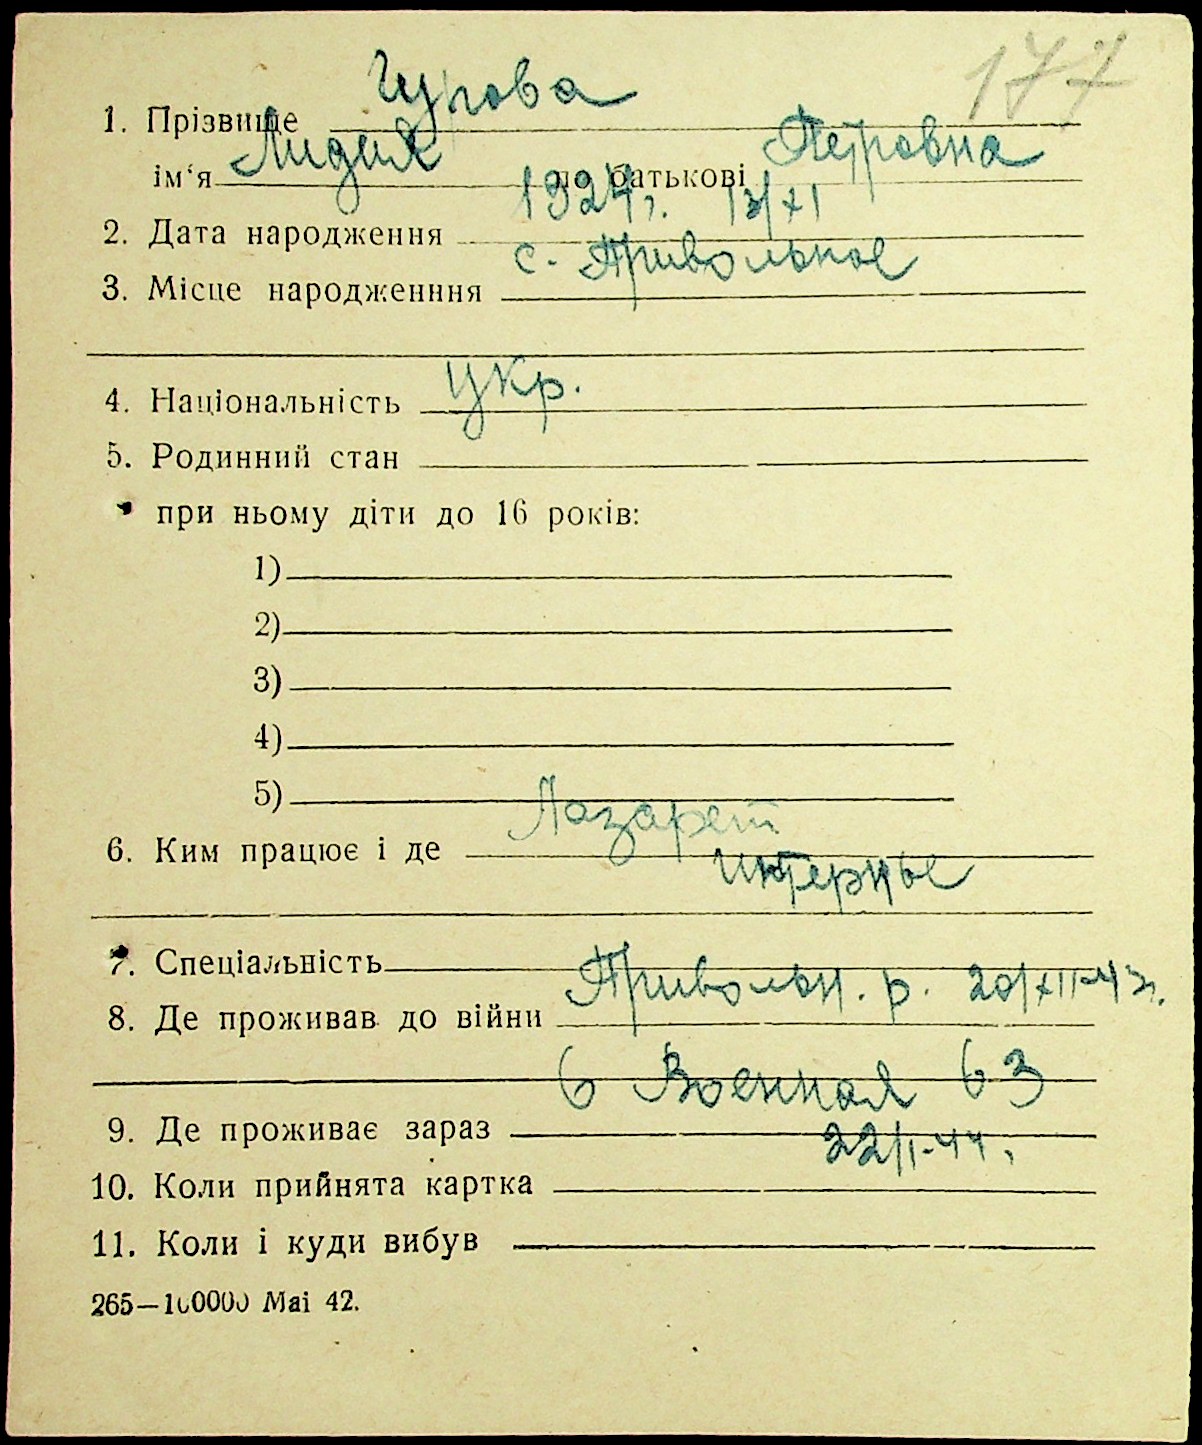 177
Гурова
1. Прізвище
Лидия Петровна
ім‘я по батькові
1924г. 13/XI
2. Дата народження
с. Привольное
3. Місце народженння
укр.
4. Національність
5. Родинний стан
при ньому діти до 16 років:
1)
2)
3)
4)
5)
Лазарет
6. Ким працює і де
7. Спеціальність
Привольн. р. 20/XII-43г.
8. Де проживав до війни
6 Военная 63
9. Де проживає зараз
22/I-44.
10. Коли прийнята картка
11. Коли і куди вибув
265—100000 Mai 42.